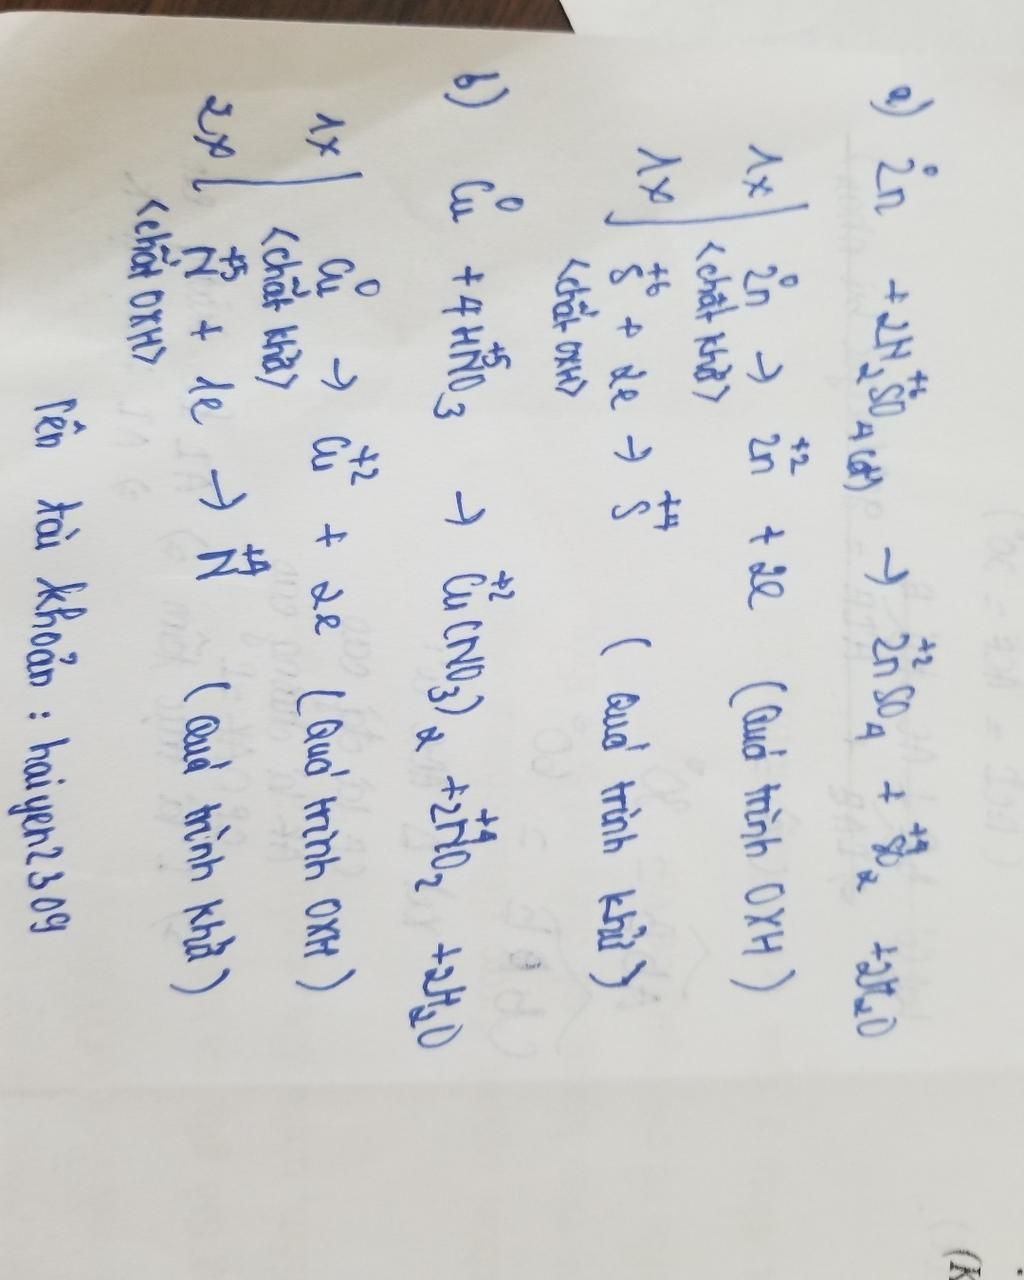 a) Zn⁰ + 2H₂S⁺⁶O₄(đ) → Zn⁺²SO₄ + S⁺⁴O₂ + 2H₂O
1x | Zn⁰ → Zn⁺² + 2e (Quá trình OXH)
<chất khử>
1x | S⁺⁶ + 2e → S⁺⁴ (Quá trình khử)
<chất OXH>
b) Cu⁰ + 4HN⁺⁵O₃ → Cu⁺²(NO₃)₂ + 2N⁺⁴O₂ + 2H₂O
1x | Cu⁰ → Cu⁺² + 2e (Quá trình OXH)
<chất khử>
2x | N⁺⁵ + 1e → N⁺⁴ (Quá trình khử)
<chất OXH>
Tên tài khoản : haiyen2309